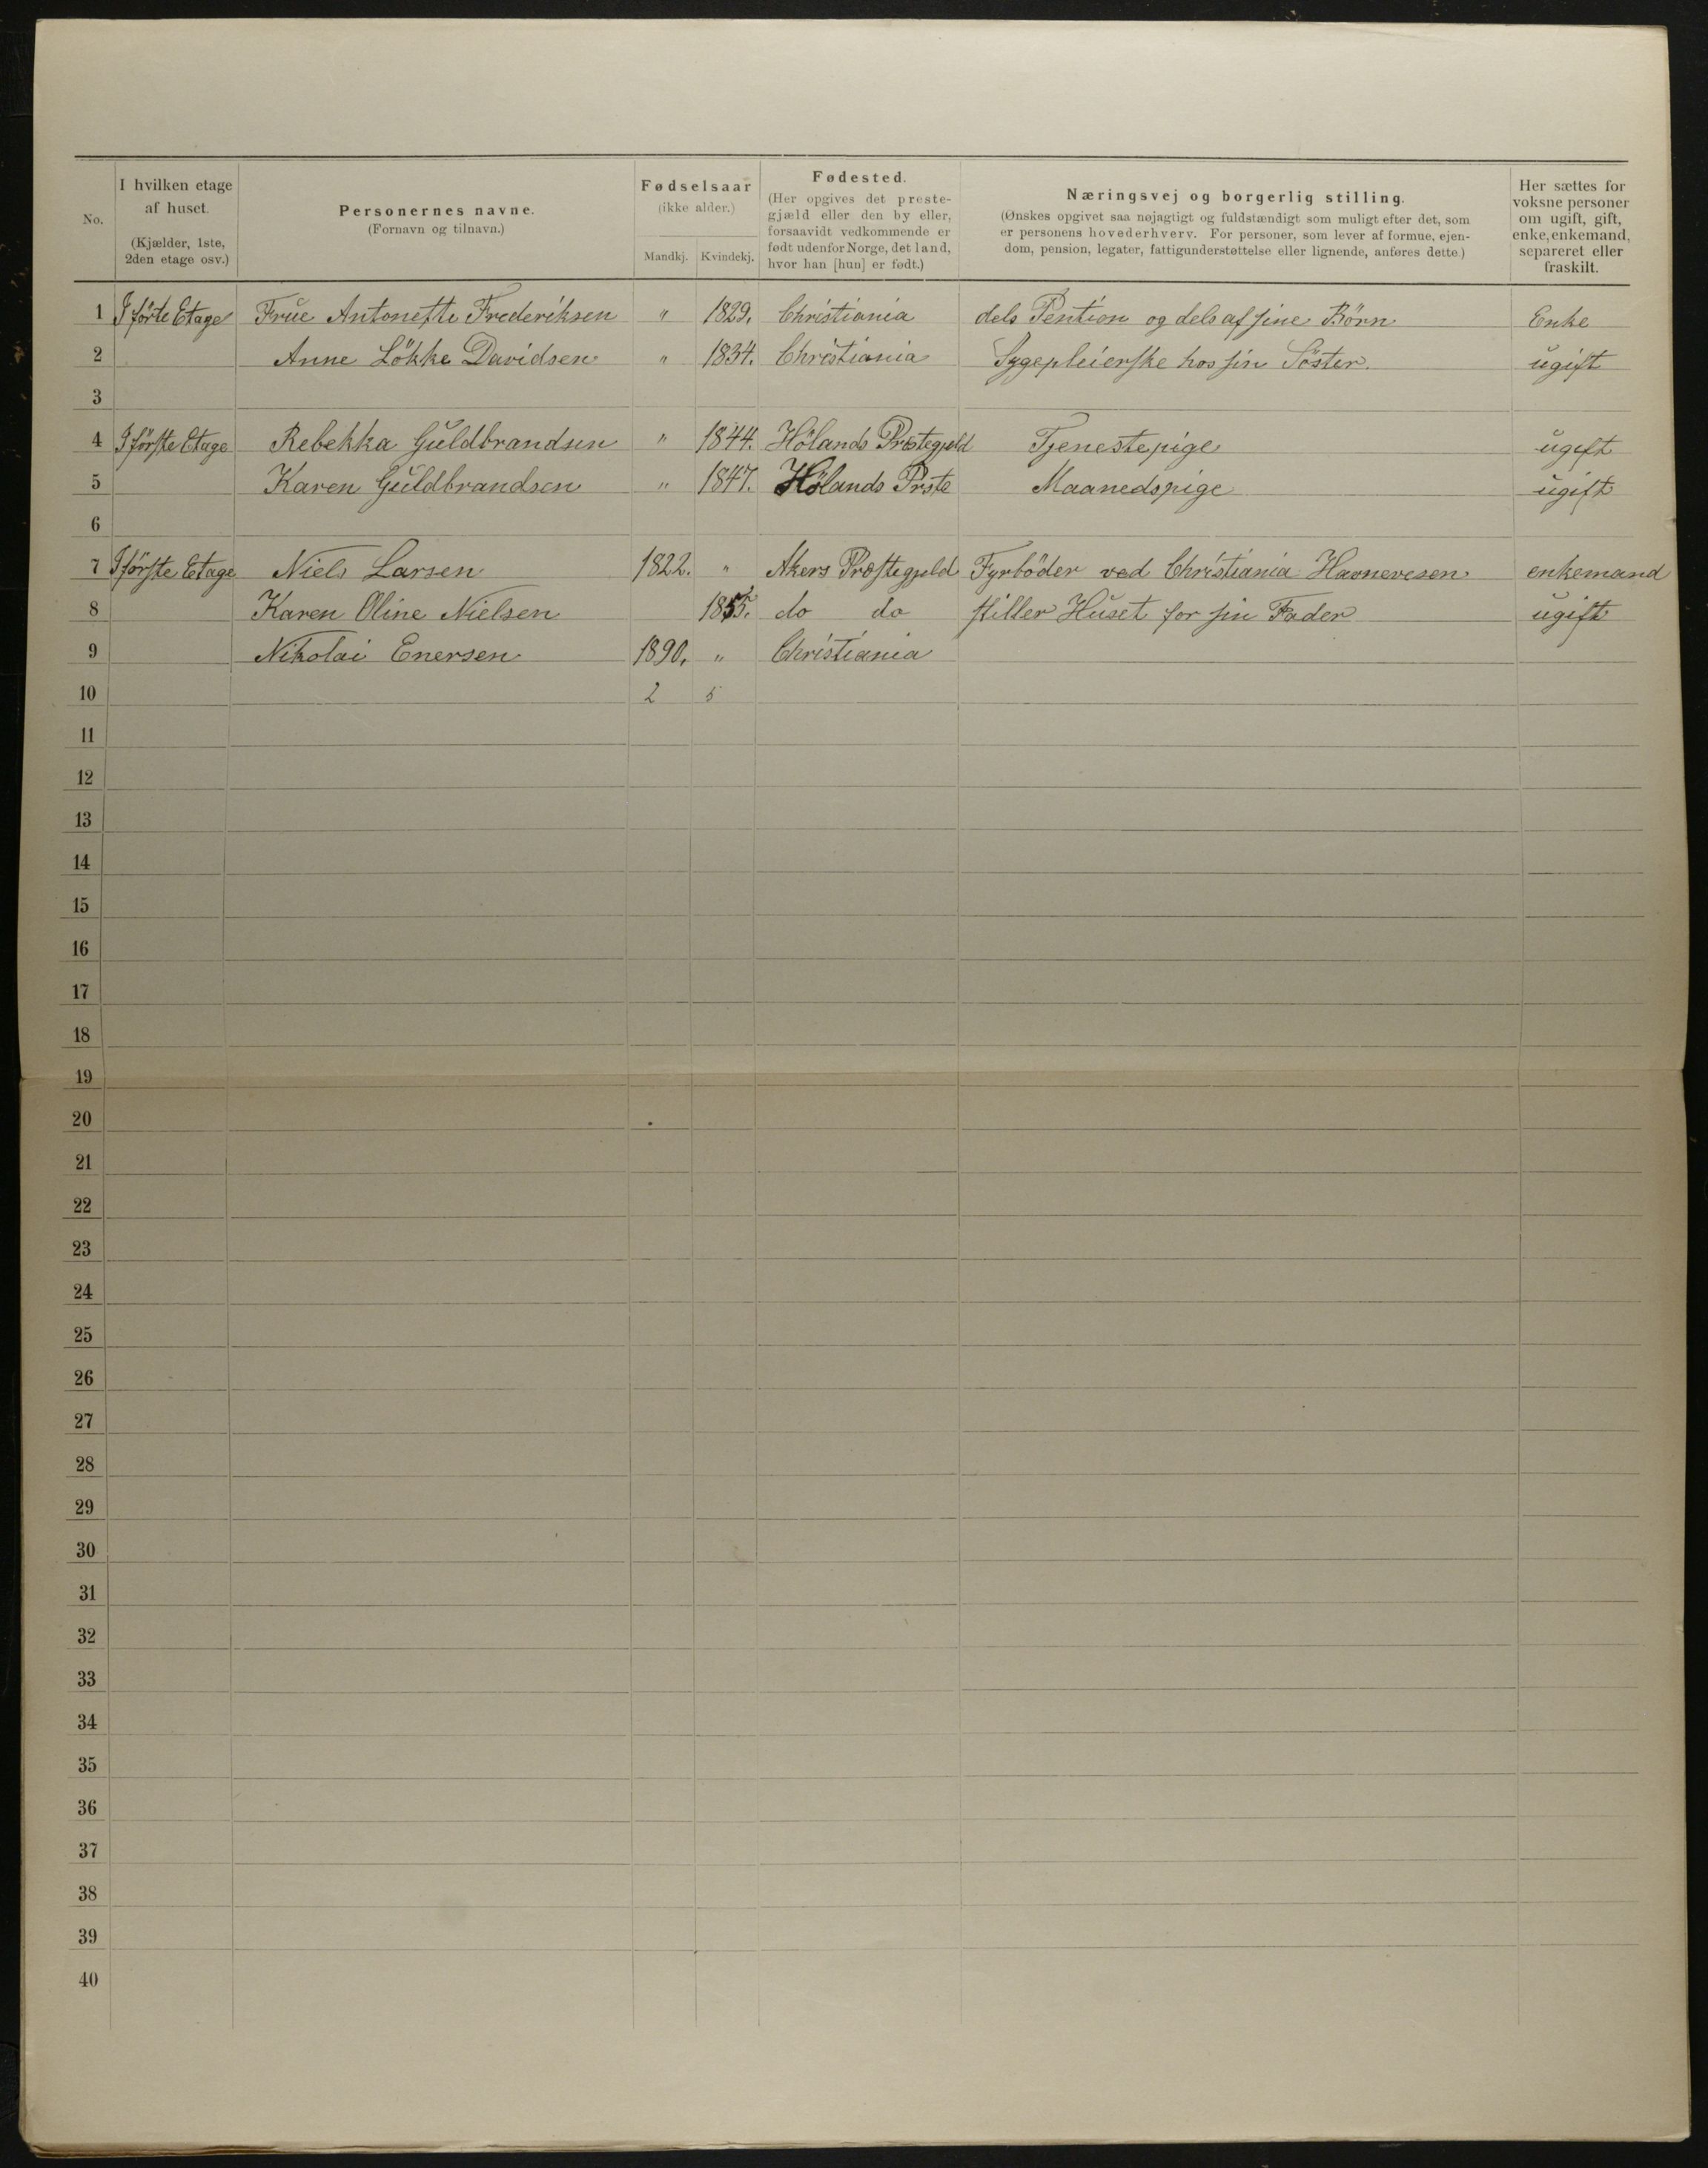 No.
I hvilken etage
af huset.
(Kjælder, 1ste,
2den etage osv.)
Personernes navne.
(Fornavn og tilnavn.)
Fødselsaar
(ikke alder.)
Mandkj. Kvindekj.
Fødested.
(Her opgives det preste-
gjæld eller den by eller,
forsaavidt vedkommende er
født udenfor Norge, det land,
hvor han [hun] er født.)
Næringsvej og borgerlig stilling.
(Ønskes opgivet saa nøjagtigt og fuldstændigt som muligt efter det, som
er personens hovederhverv. For personer, som lever af formue, ejen-
dom, pension, legater, fattigunderstøttelse eller lignende, anføres dette.)
Her sættes for
voksne personer
om ugift, gift,
enke, enkemand,
separeret eller
fraskilt.
1 I förte Etage Frue Antonette Frederiksen " 1829. Christiania dels Pention og dels af sine Börn Enke
2 Anne Lökke Davidsen " 1834. Christiania Sygepleierske hos sin Söster. ugift
3
4 I förste Etage Rebekka Guldbrandsen " 1844. Hölands Prestegjeld Tjenestepige ugift
5 Karen Guldbrandsen " 1847. Hölands Prste Maanedspige ugift
6
7 I förste Etage Niels Larsen 1822. " Akers Præstegjeld Fyrböder ved Christiania Havnevesen enkemand
8 Karen Oline Nielsen 1855. do do stiller Huset for sin Fader ugift
9 Nikolai Enersen 1890. " Christiania
10 2 5
11
12
13
14
15
16
17
18
19
20
21
22
23
24
25
26
27
28
29
30
31
32
33
34
35
36
37
38
39
40